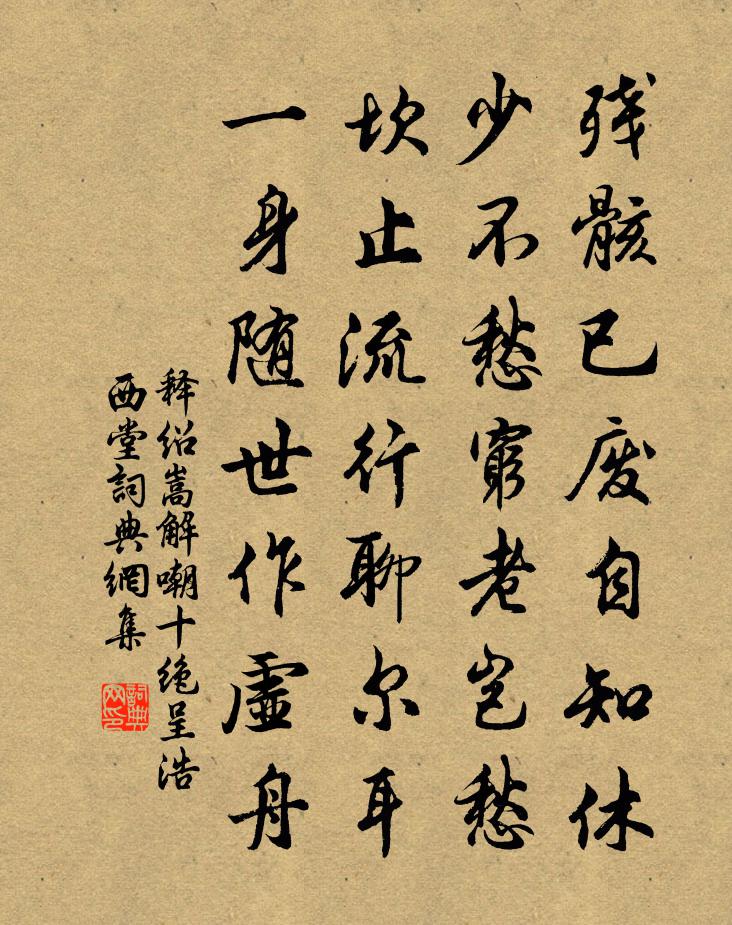 残骸已废自知休
少不愁穷老岂愁
坎止流行聊尔耳
一身随世作虚舟
释绍嵩解嘲十绝呈浩
西堂詞典網集
詞典网印